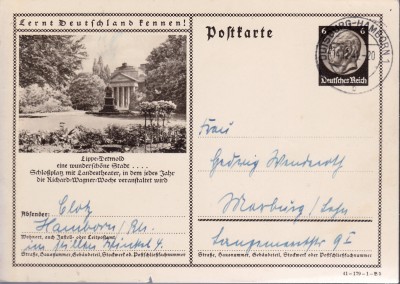 Lernt Deutschland kennen!
Postkarte
DUISBURG-HAMBORN 1
6 6
Deutsches Reich
Lippe-Detmold
eine wunderschöne Stadt ....
Schloßplatz mit Landestheater, in dem jedes Jahr
die Richard-Wagner-Woche veranstaltet wird
Absender:
Clotz
Hamborn/Rh.
Wohnort, auch Zustell- oder Leitpostamt
im stillen Winkel 4.
Straße, Hausnummer, Gebäudeteil, Stockwerk od. Postschließfachnummer
Frau
Hedwig Wenderoth
Marburg/Lahn
9 I
Straße, Hausnummer, Gebäudeteil, Stockwerk oder Postschließfachnummer